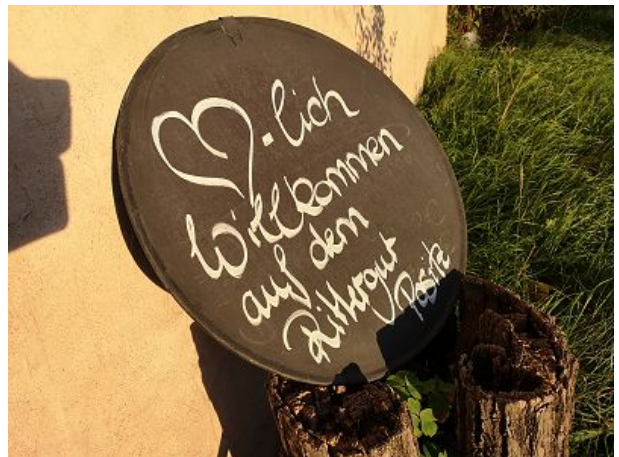 ♡-lich
Willkommen
auf dem
Rittergut
Positz